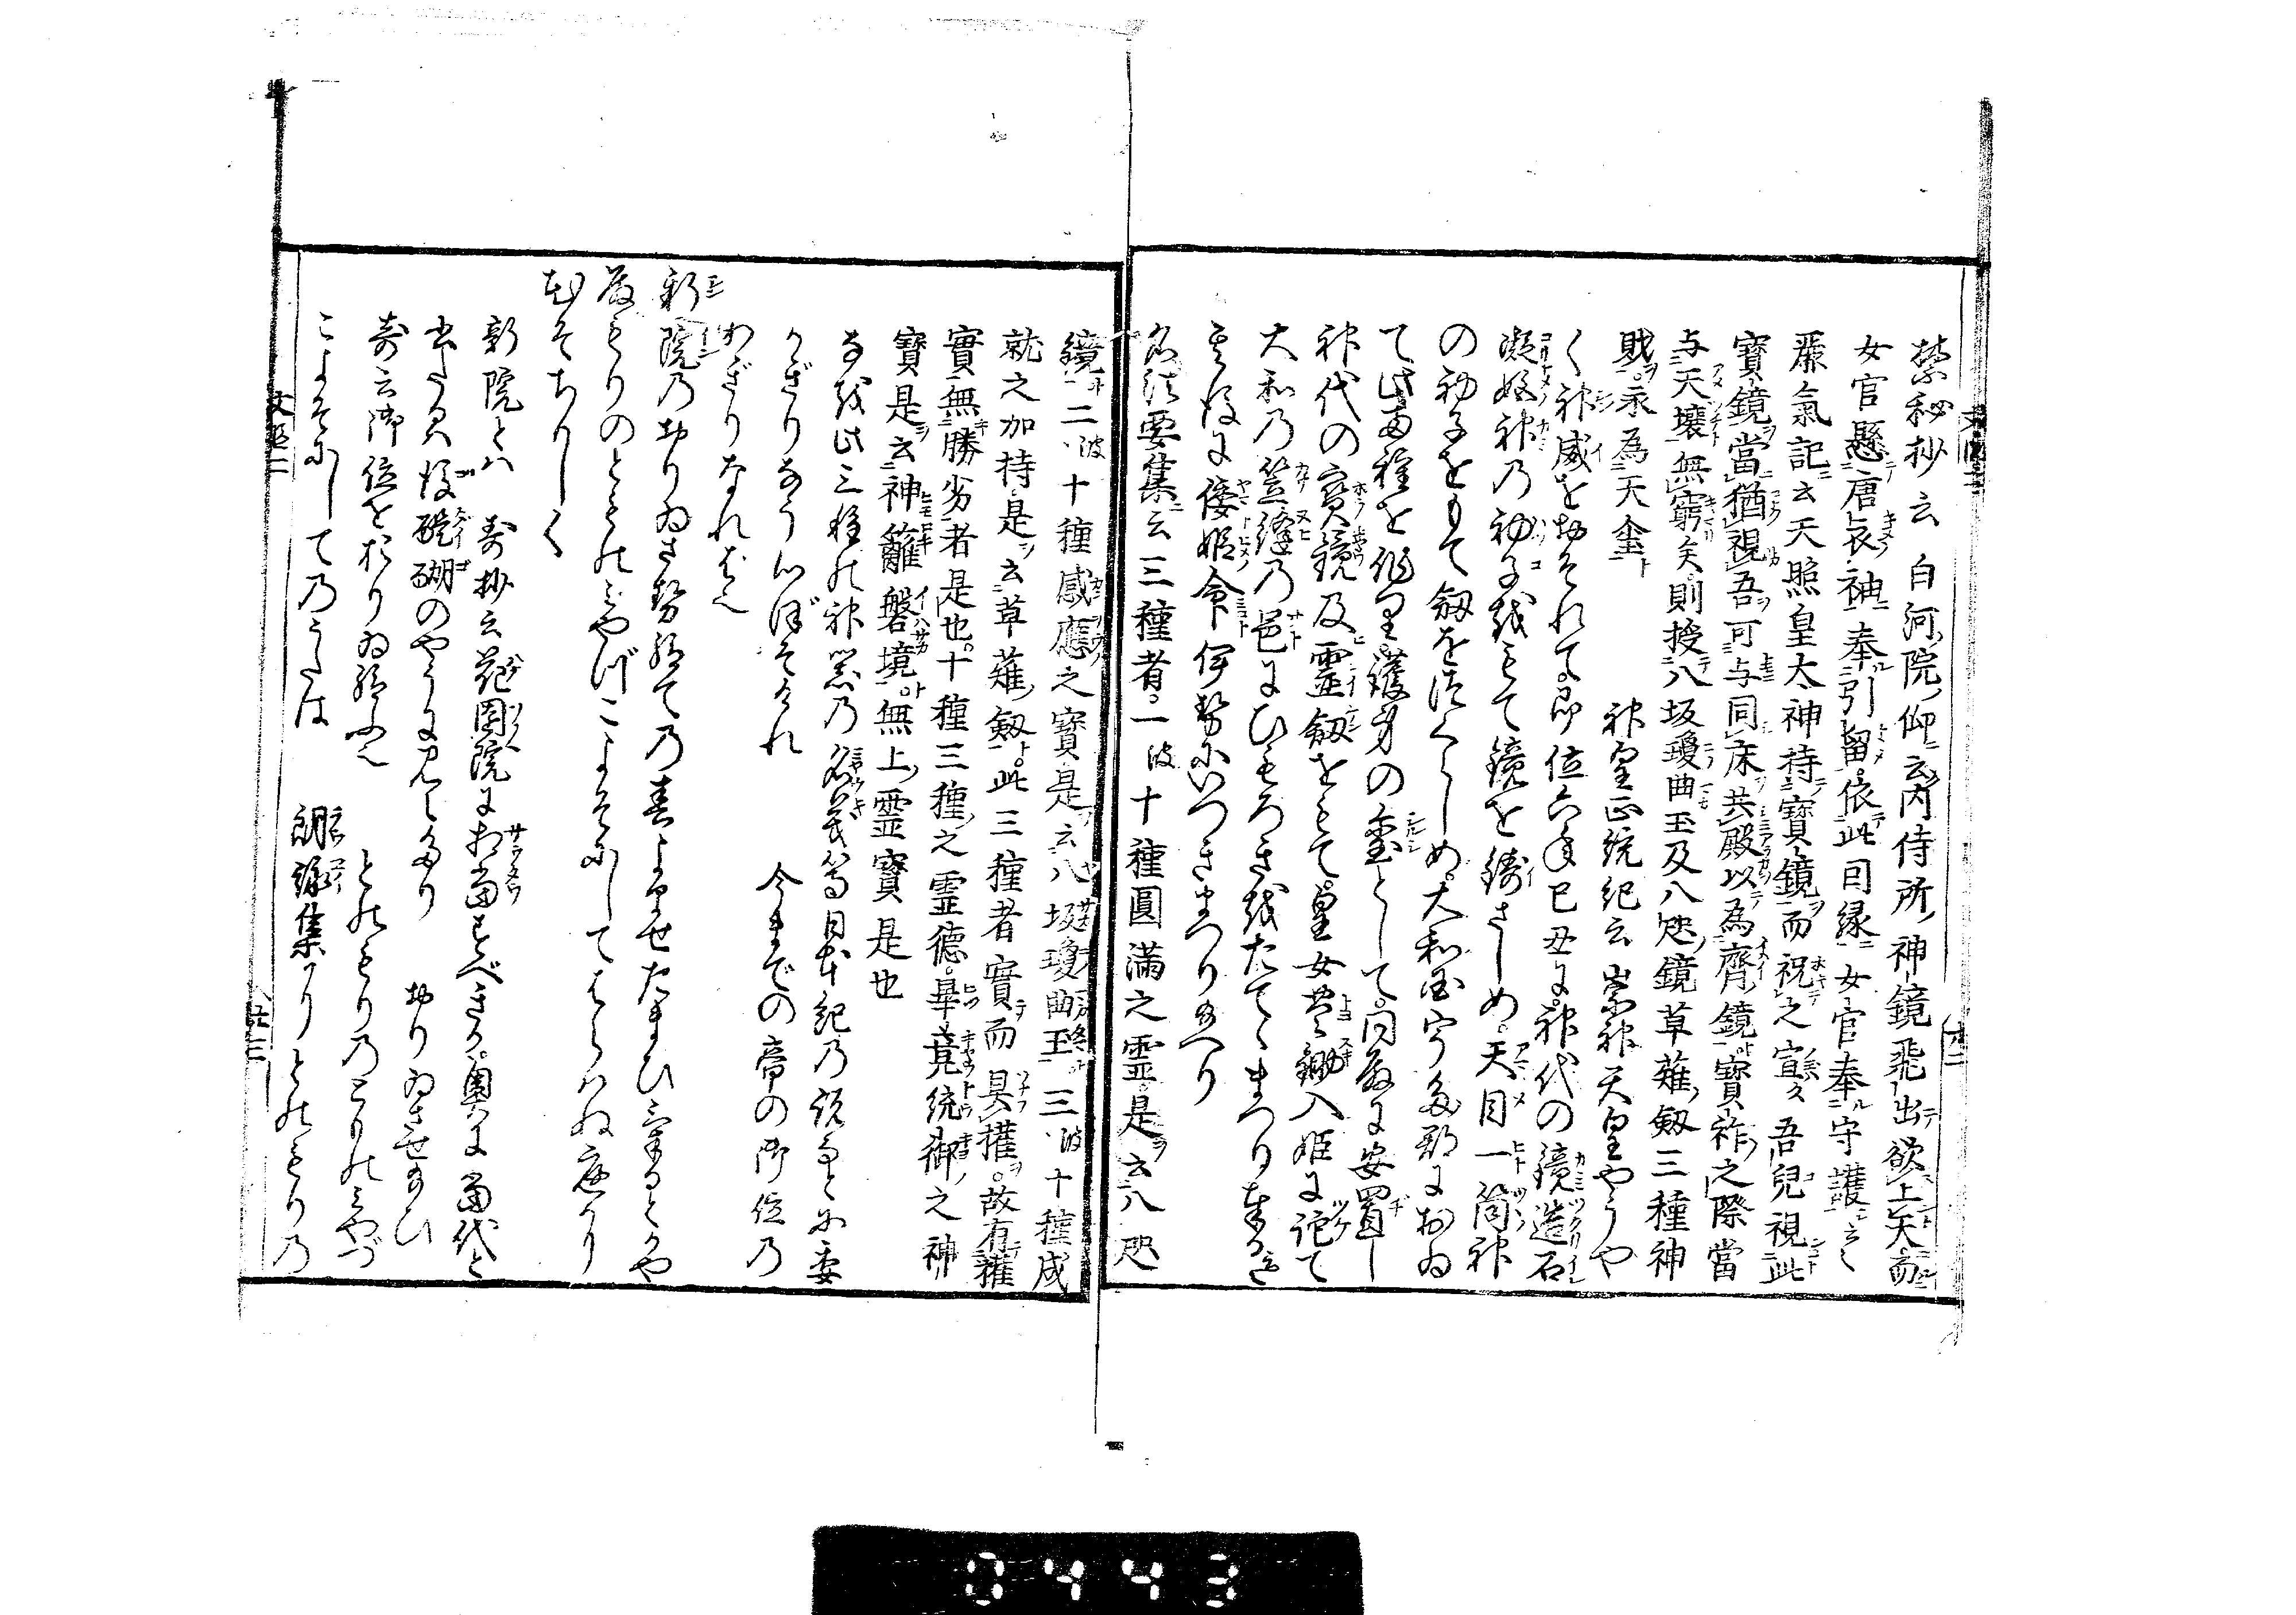 禁秘抄云 白河院仰云内侍所神鏡飛出欲上天而
女官懸唐衣袖奉引留依此因縁女官奉守護云々
麗氣記云天照皇太神持寳鏡而祝之宣久吾兒視此
寳鏡當猶視吾可与同床共殿以為齊鏡寳祚之隆當
与天壤無窮矣則授八坂瓊曲玉及八咫鏡草薙劔三種神
財永為天璽 神皇正統紀云崇神天皇やうや
く神威をおそれて即位六年己丑に神代の鏡造石
凝姥神乃初子をもて鏡を鋳さしめ天目一箇神
の初子をもて劔をつくらしめ大和国宇多郡におゐ
て此両種を護身の璽として同殿に安置し
神代の寳鏡及霊劔をもて皇女豊鋤入姫に託て
大和乃笠縫乃邑にひもろきをたてゝまつり奉る
其後に倭姫命伊勢にいつきまつり給へり
名法要集云三種者一波十種圓満之霊是云八咫
鏡二波十種感應之寳是云八坂瓊曲玉三波十種成
就之加持是云草薙劔此三種者實而具權故有權
實無勝劣者是也十種三種之霊徳畢竟統御之神
寳是云神籬磐境無上霊寳是也
かぎりなう心ぼそけれ 今までの帝の御位乃
かぎりなれば也
新院乃おりゐさせ給て乃春よませたまひけるとかや
殿もりのとものみやづこよそにしてはらはぬ庭に
花そちりしく
新院とハ 寿抄云花園院に相當すべきか奥に當代と
書たるハ後醍醐のやうに見えたり おりゐさせ給ひ
寿云御位をおりゐ給ふ也 とのもりのとものみやづ
こよそにしての哥は 拾遺集に とのもりの